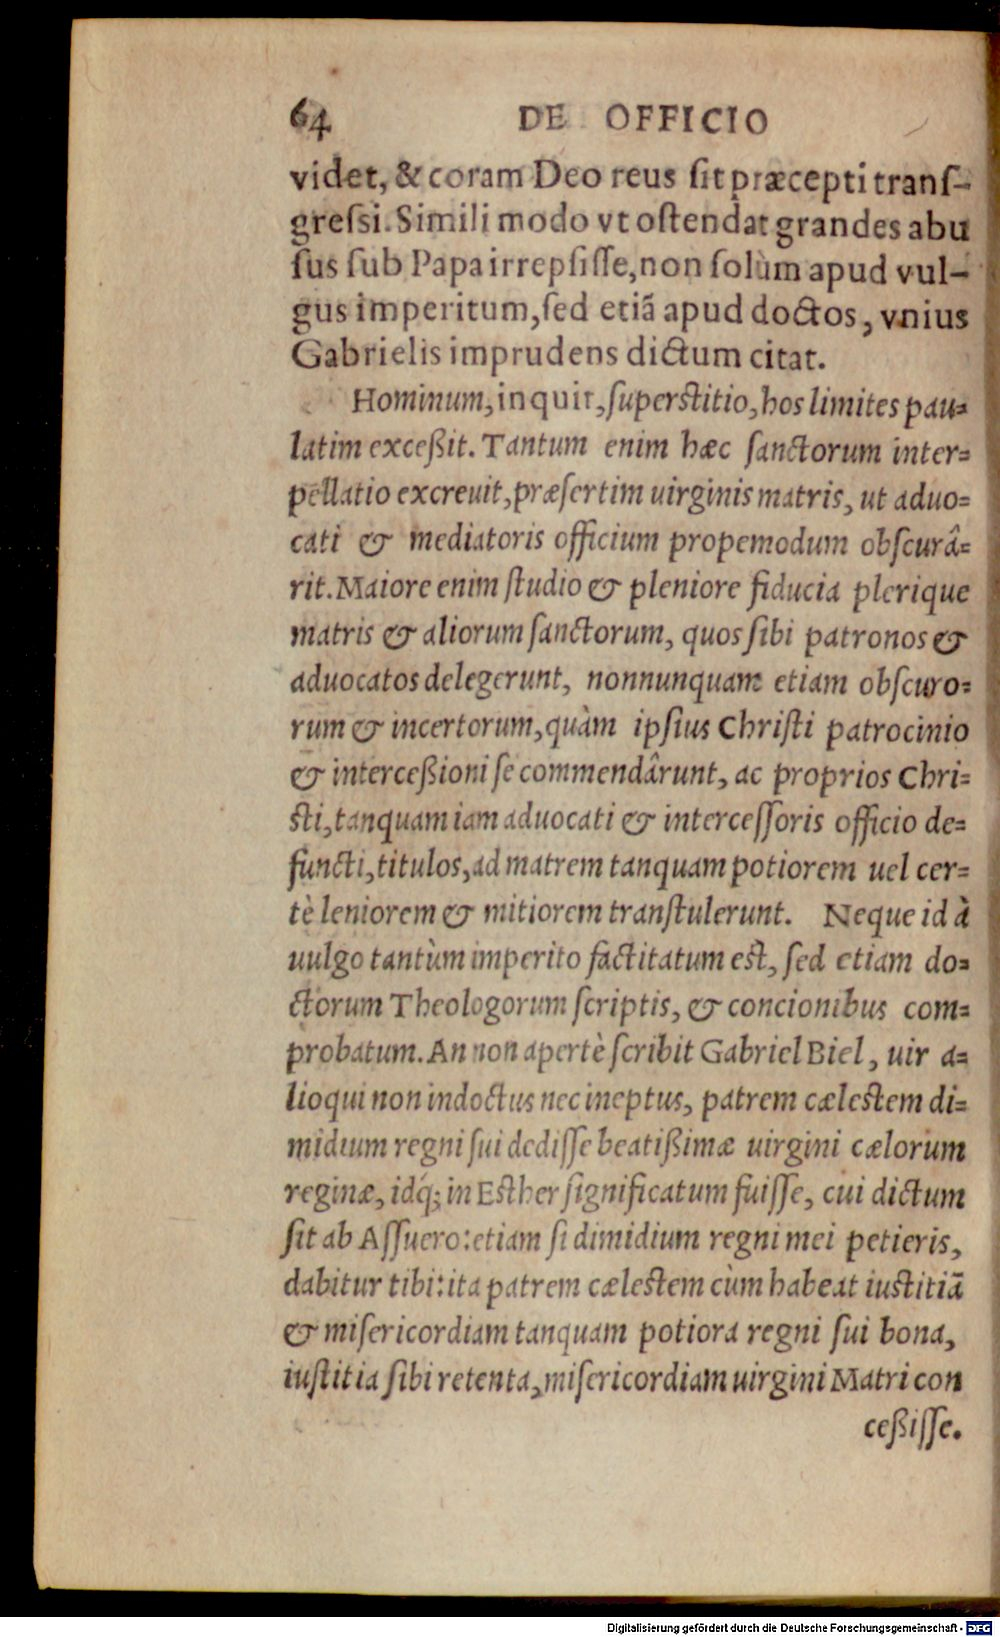 64 DE OFFICIO
videt, & coram Deo reus ſit præcepti tranſ-
greſsi. Simili modo vt oſtendat grandes abu
ſus ſub Papa irrepſiſſe, non ſolùm apud vul-
gus imperitum, ſed etiã apud doctos, vnius
Gabrielis imprudens dictum citat.
Hominum, inquit, ſuperſtitio, hos limites pau-
latim exceßit. Tantum enim hæc ſanctorum inter-
pellatio excreuit, præſertim uirginis matris, ut aduo-
cati & mediatoris officium propemodum obſcurâ-
rit. Maiore enim ſtudio & pleniore fiducia plerique
matris & aliorum ſanctorum, quos ſibi patronos &
aduocatos delegerunt, nonnunquam etiam obſcuro-
rum & incertorum, quàm ipſius Chriſti patrocinio
& interceßioni ſe commendârunt, ac proprios Chri-
ſti, tanquam iam aduocati & interceſſoris officio de-
functi, titulos, ad matrem tanquam potiorem uel cer-
tè leniorem & mitiorem tranſtulerunt. Neque id à
uulgo tantùm imperito factitatum eſt, ſed etiam do-
ctorum Theologorum ſcriptis, & concionibus com-
probatum. An non apertè ſcribit Gabriel Biel, uir a-
lioqui non indoctus nec ineptus, patrem cæleſtem di-
midium regni ſui dediſſe beatißimæ uirgini cælorum
reginæ, idq́; in Eſther ſignificatum fuiſſe, cui dictum
ſit ab Aſſuero: etiam ſi dimidium regni mei petieris,
dabitur tibi: ita patrem cæleſtem cùm habeat iuſtitiã
& miſericordiam tanquam potiora regni ſui bona,
iuſtitia ſibi retenta, miſericordiam uirgini Matri con
ceßiſſe.
Digitalisierung gefördert durch die Deutsche Forschungsgemeinschaft - DFG